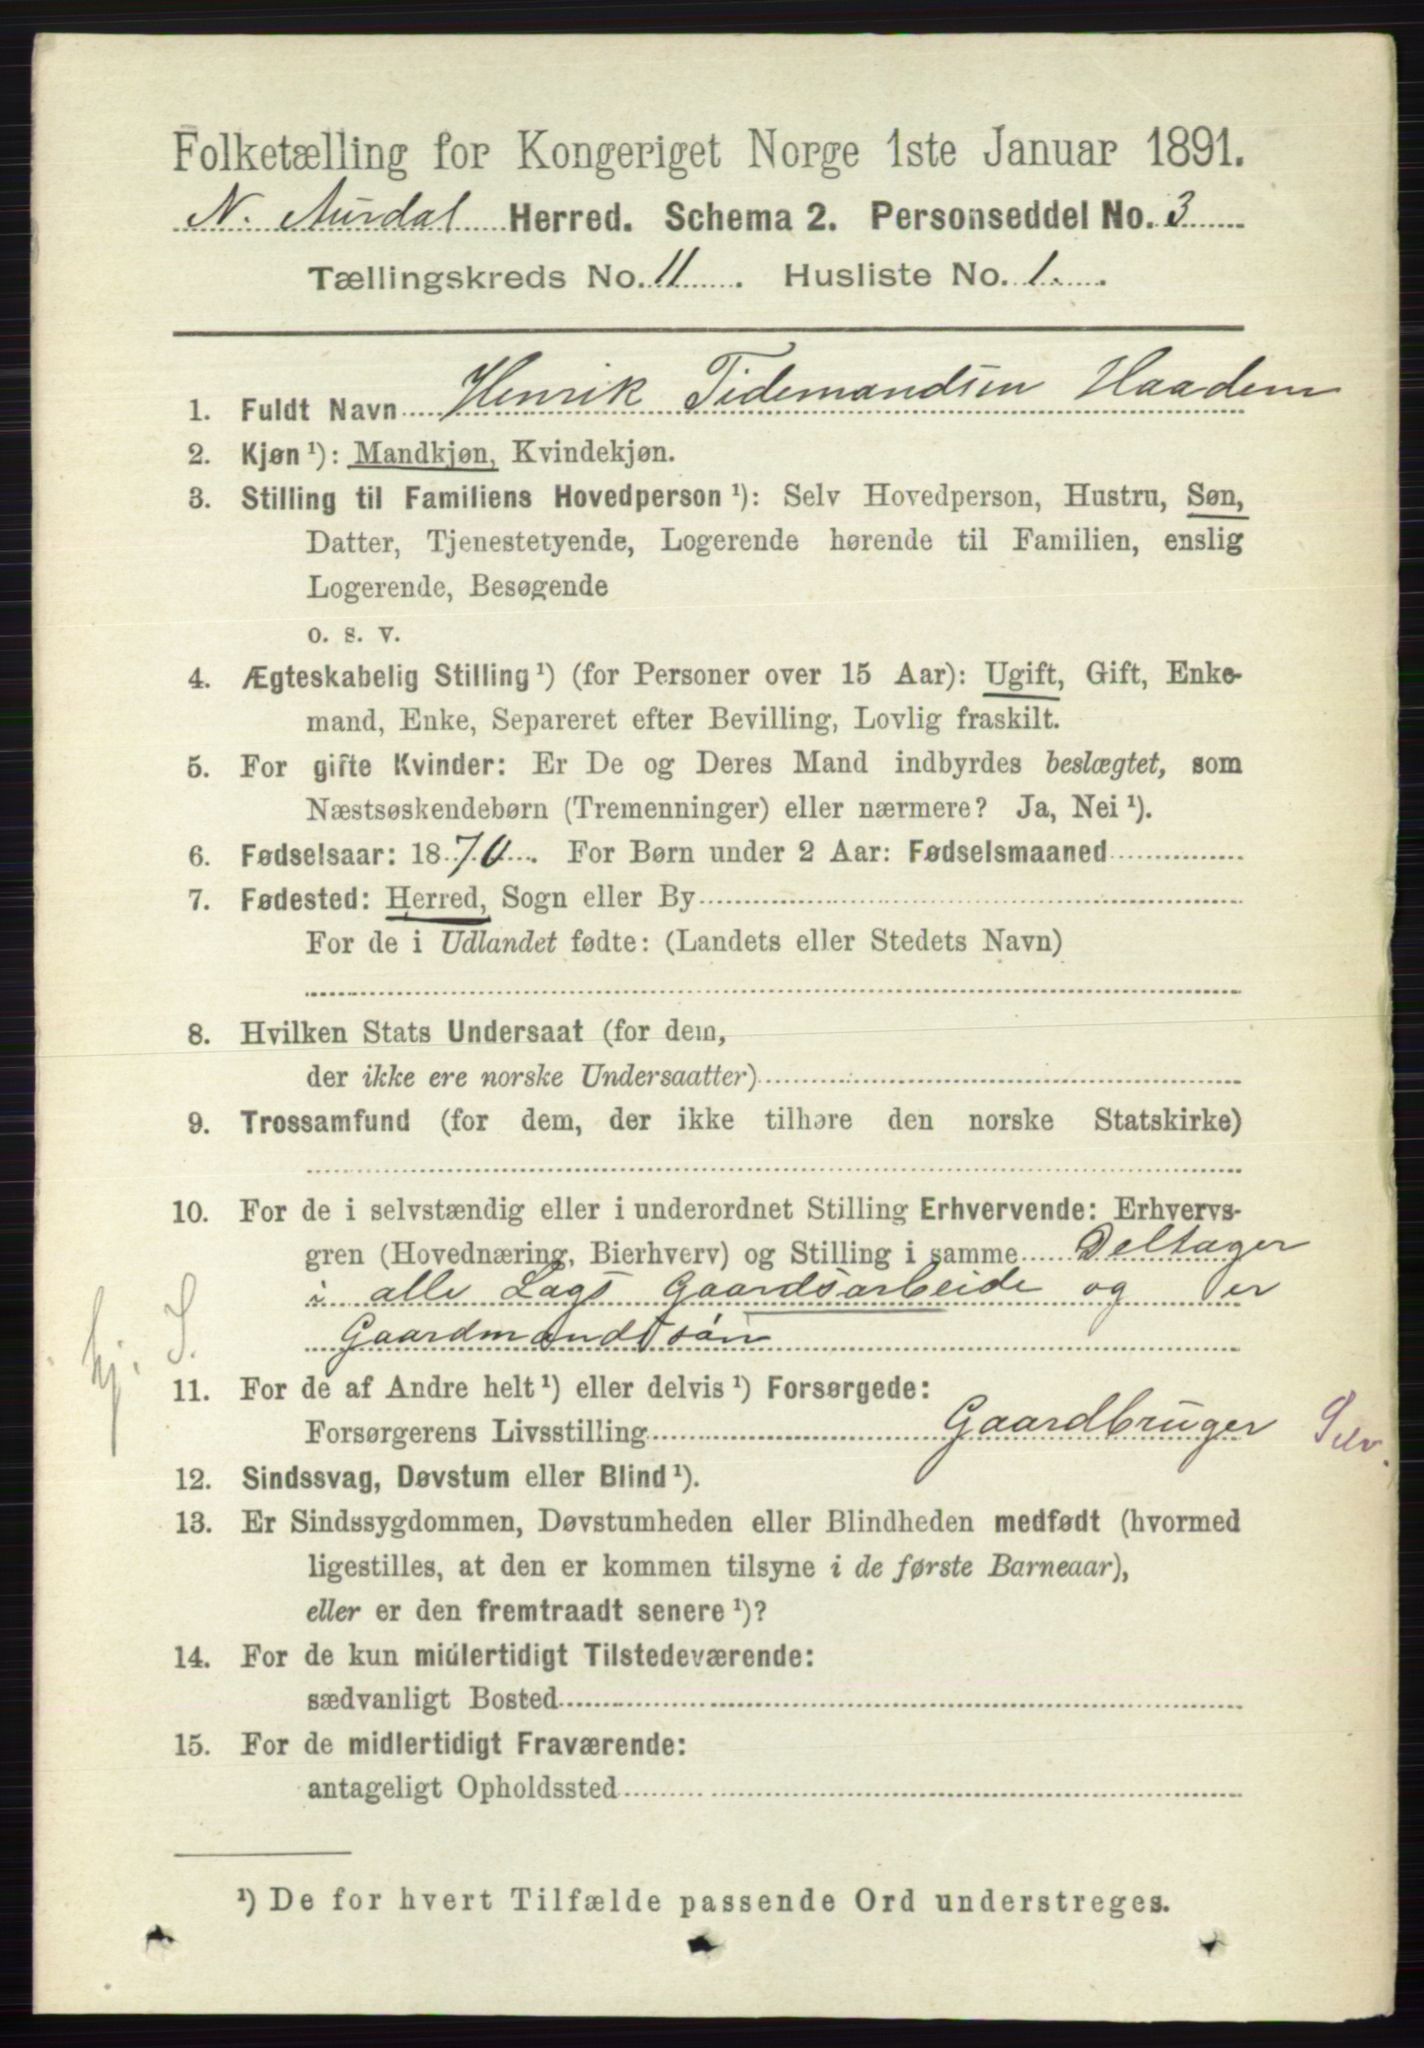 Folketælling for Kongeriget Norge 1ste Januar 1891.
N. Aurdal Herred. Schema 2. Personseddel No. 3
Tællingskreds No. 11. Husliste No. 1.
1. Fuldt Navn Henrik Tidemandsen Haadem
2. Kjøn ¹): Mandkjøn, Kvindekjøn.
3. Stilling til Familiens Hovedperson ¹): Selv Hovedperson, Hustru, Søn,
Datter, Tjenestetyende, Logerende hørende til Familien, enslig
Logerende, Besøgende
o. s. v.
4. Ægteskabelig Stilling ¹) (for Personer over 15 Aar): Ugift, Gift, Enke-
mand, Enke, Separeret efter Bevilling, Lovlig fraskilt.
5. For gifte Kvinder: Er De og Deres Mand indbyrdes beslægtet, som
Næstsøskendebørn (Tremenninger) eller nærmere? Ja, Nei ¹).
6. Fødselsaar: 1870. For Børn under 2 Aar: Fødselsmaaned
7. Fødested: Herred, Sogn eller By
For de i Udlandet fødte: (Landets eller Stedets Navn)
8. Hvilken Stats Undersaat (for dem,
der ikke ere norske Undersaatter)
9. Trossamfund (for dem, der ikke tilhøre den norske Statskirke)
10. For de i selvstændig eller i underordnet Stilling Erhvervende: Erhvervs-
gren (Hovednæring, Bierhverv) og Stilling i samme Deltager
i alle Lags Gaardsarbeide og er
Gaardmandssøn
hj. S.
11. For de af Andre helt ¹) eller delvis ¹) Forsørgede:
Forsørgerens Livsstilling Gaardbruger Selv.
12. Sindssvag, Døvstum eller Blind ¹).
13. Er Sindssygdommen, Døvstumheden eller Blindheden medfødt (hvormed
ligestilles, at den er kommen tilsyne i de første Barneaar),
eller er den fremtraadt senere ¹)?
14. For de kun midlertidigt Tilstedeværende:
sædvanligt Bosted
15. For de midlertidigt Fraværende:
antageligt Opholdssted
¹) De for hvert Tilfælde passende Ord understreges.